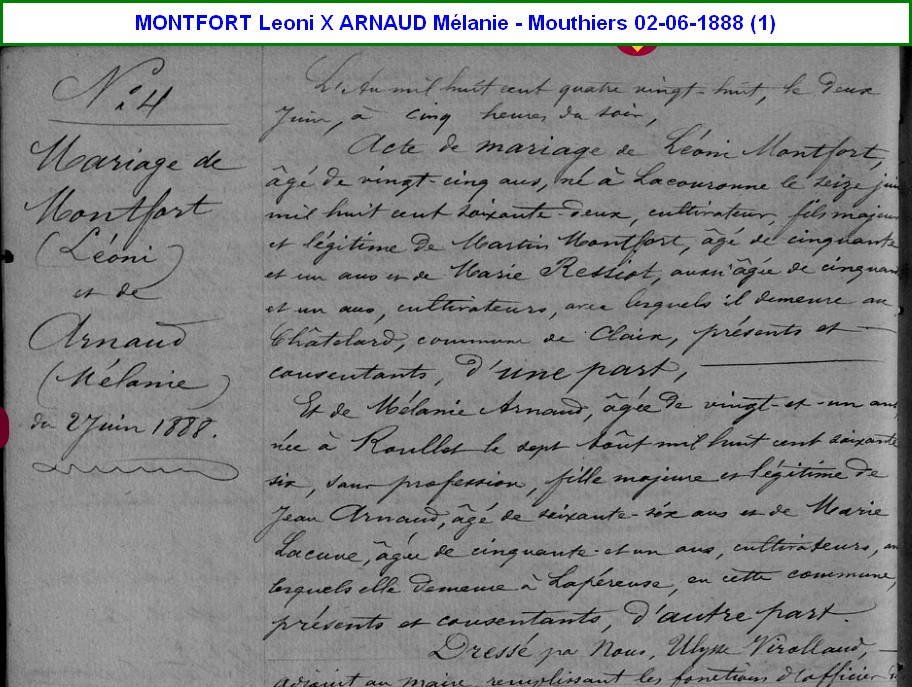 MONTFORT Leoni X ARNAUD Mélanie - Mouthiers 02-06-1888 (1)
N° 4
Mariage de
Montfort
(Léoni)
et de
Arnaud
(Mélanie)
du 2 Juin 1888.
L'An mil huit cent quatre vingt-huit, le deux
Juin, à cinq heures du soir,
Acte de mariage de Léoni Montfort,
âgé de vingt-cinq ans, né à Lacouronne le seize jui
mil huit cent soixante-deux, cultivateur, fils majeur
et légitime de Martin Montfort, âgé de cinquante
et un ans et de Marie Ressiot, aussi âgée de cinquan
et un ans, cultivateurs, avec lesquels il demeure au
Châtelard, commune de Claix, présents et
consentants, d'une part,
Et de Mélanie Arnaud, âgée de vingt-et-un ans
née à Roullet le sept août mil huit cent soixante
six, sans profession, fille majeure et légitime de
Jean Arnaud, âgé de soixante-six ans et de Marie
Lacuve, âgée de cinquante-et-un ans, cultivateurs, av
lesquels elle demeure à Lapéreuse, en cette commune,
présents et consentants, d'autre part.
Dressé par Nous, Ulysse Virolleaud,
adjoint au maire, remplissant les fonctions d'officier